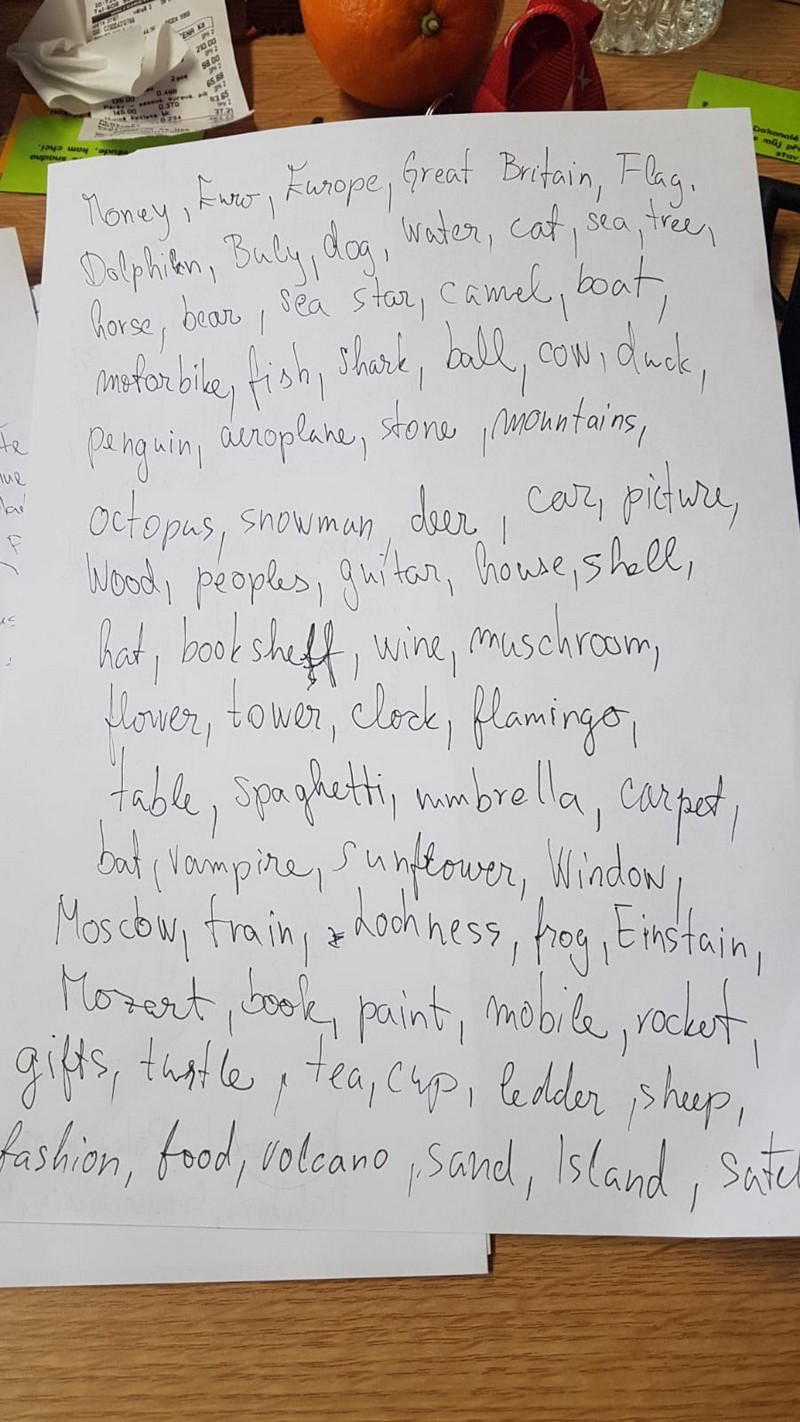 ENA Kč
210.00
98.00
65.68
53.65
37.21
139.00 0.468
145.00 0.370
0.234
Dokonalé
stav
Money, Euro, Europe, Great Britain, Flag.
Dolphikn, Buly, dog, water, cat, sea, tree,
horse, bear, sea star, camel, boat,
motorbike, fish, shark, ball, cow, duck,
penguin, aeroplane, stone, mountains,
octopus, snowman, deer, car, picture,
Wood, peoples, guitar, house, shell,
hat, bookshelf, wine, muschroom,
flower, tower, clock, flamingo,
table, spaghetti, umbrella, carpet,
bat, vampire, sunflower, Window,
Moscow, train, Lochness, frog, Einstain,
Mozart, book, paint, mobile, rocket,
gifts, turtle, tea, cup, ledder, sheep,
fashion, food, volcano, sand, Island, satel